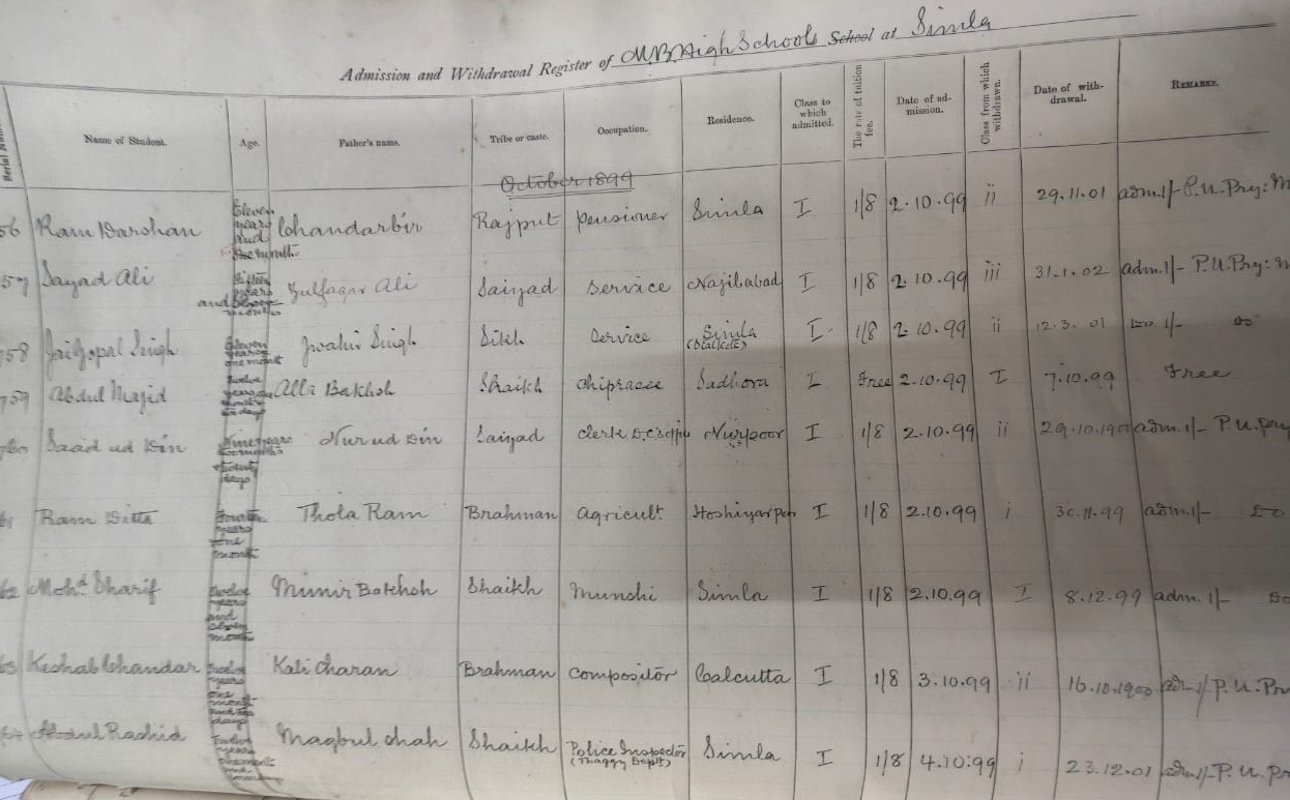 Admission and Withdrawal Register of M.B. High Schools School at Simla
Name of Student. Age. Father's name. Tribe or caste. Occupation. Residence. Class to which admitted. The rate of tuition fee. Date of admission. Class from which withdrawn. Date of withdrawal. REMARKS.
October 1899
56 Ram Darshan Eleven years and one month Chandarbir Rajput pensioner Simla I 1/8 2.10.99 ii 29.11.01 adm. 1/- P.U. Pry:
57 Sayad Ali and months Zulfaqar Ali Saiyad Service Najibabad I 1/8 2.10.99 iii 31.1.02 adm. 1/- P.U. Pry:
758 Jai Gopal Singh Eleven years one month Jwahir Singh Sikh Service Simla I 1/8 2.10.99 ii 12.3.01 Do 1/- Do
759 Abdul Majid Twelve years days Alli Bakhsh Shaikh Chiprasee Sadhora I Free 2.10.99 I 7.10.99 Free
760 Saad ud Din Nine years days Nur ud Din Saiyad Clerk Nurpoor I 1/8 2.10.99 ii 29.10.1900 adm. 1/- P.U. Pry
61 Ram Ditta years one month Thola Ram Brahman Agricult. Hoshiyarpoor I 1/8 2.10.99 i 30.11.99 adm. 1/- Do
62 Mohd Sharif Twelve years and month Munir Bakhsh Shaikh Munshi Simla I 1/8 2.10.99 I 8.12.99 adm. 1/- Do
63 Keshab Chandar Twelve years one month days Kali Charan Brahman Compositor Calcutta I 1/8 3.10.99 ii 16.10.1900 adm. 1/- P.U. Pr
64 Abdul Rashid Twelve years Maqbul Shah Shaikh Police Inspector (Thaggy Deptt) Simla I 1/8 4.10.99 i 23.12.01 adm. 1/- P.U. Pr